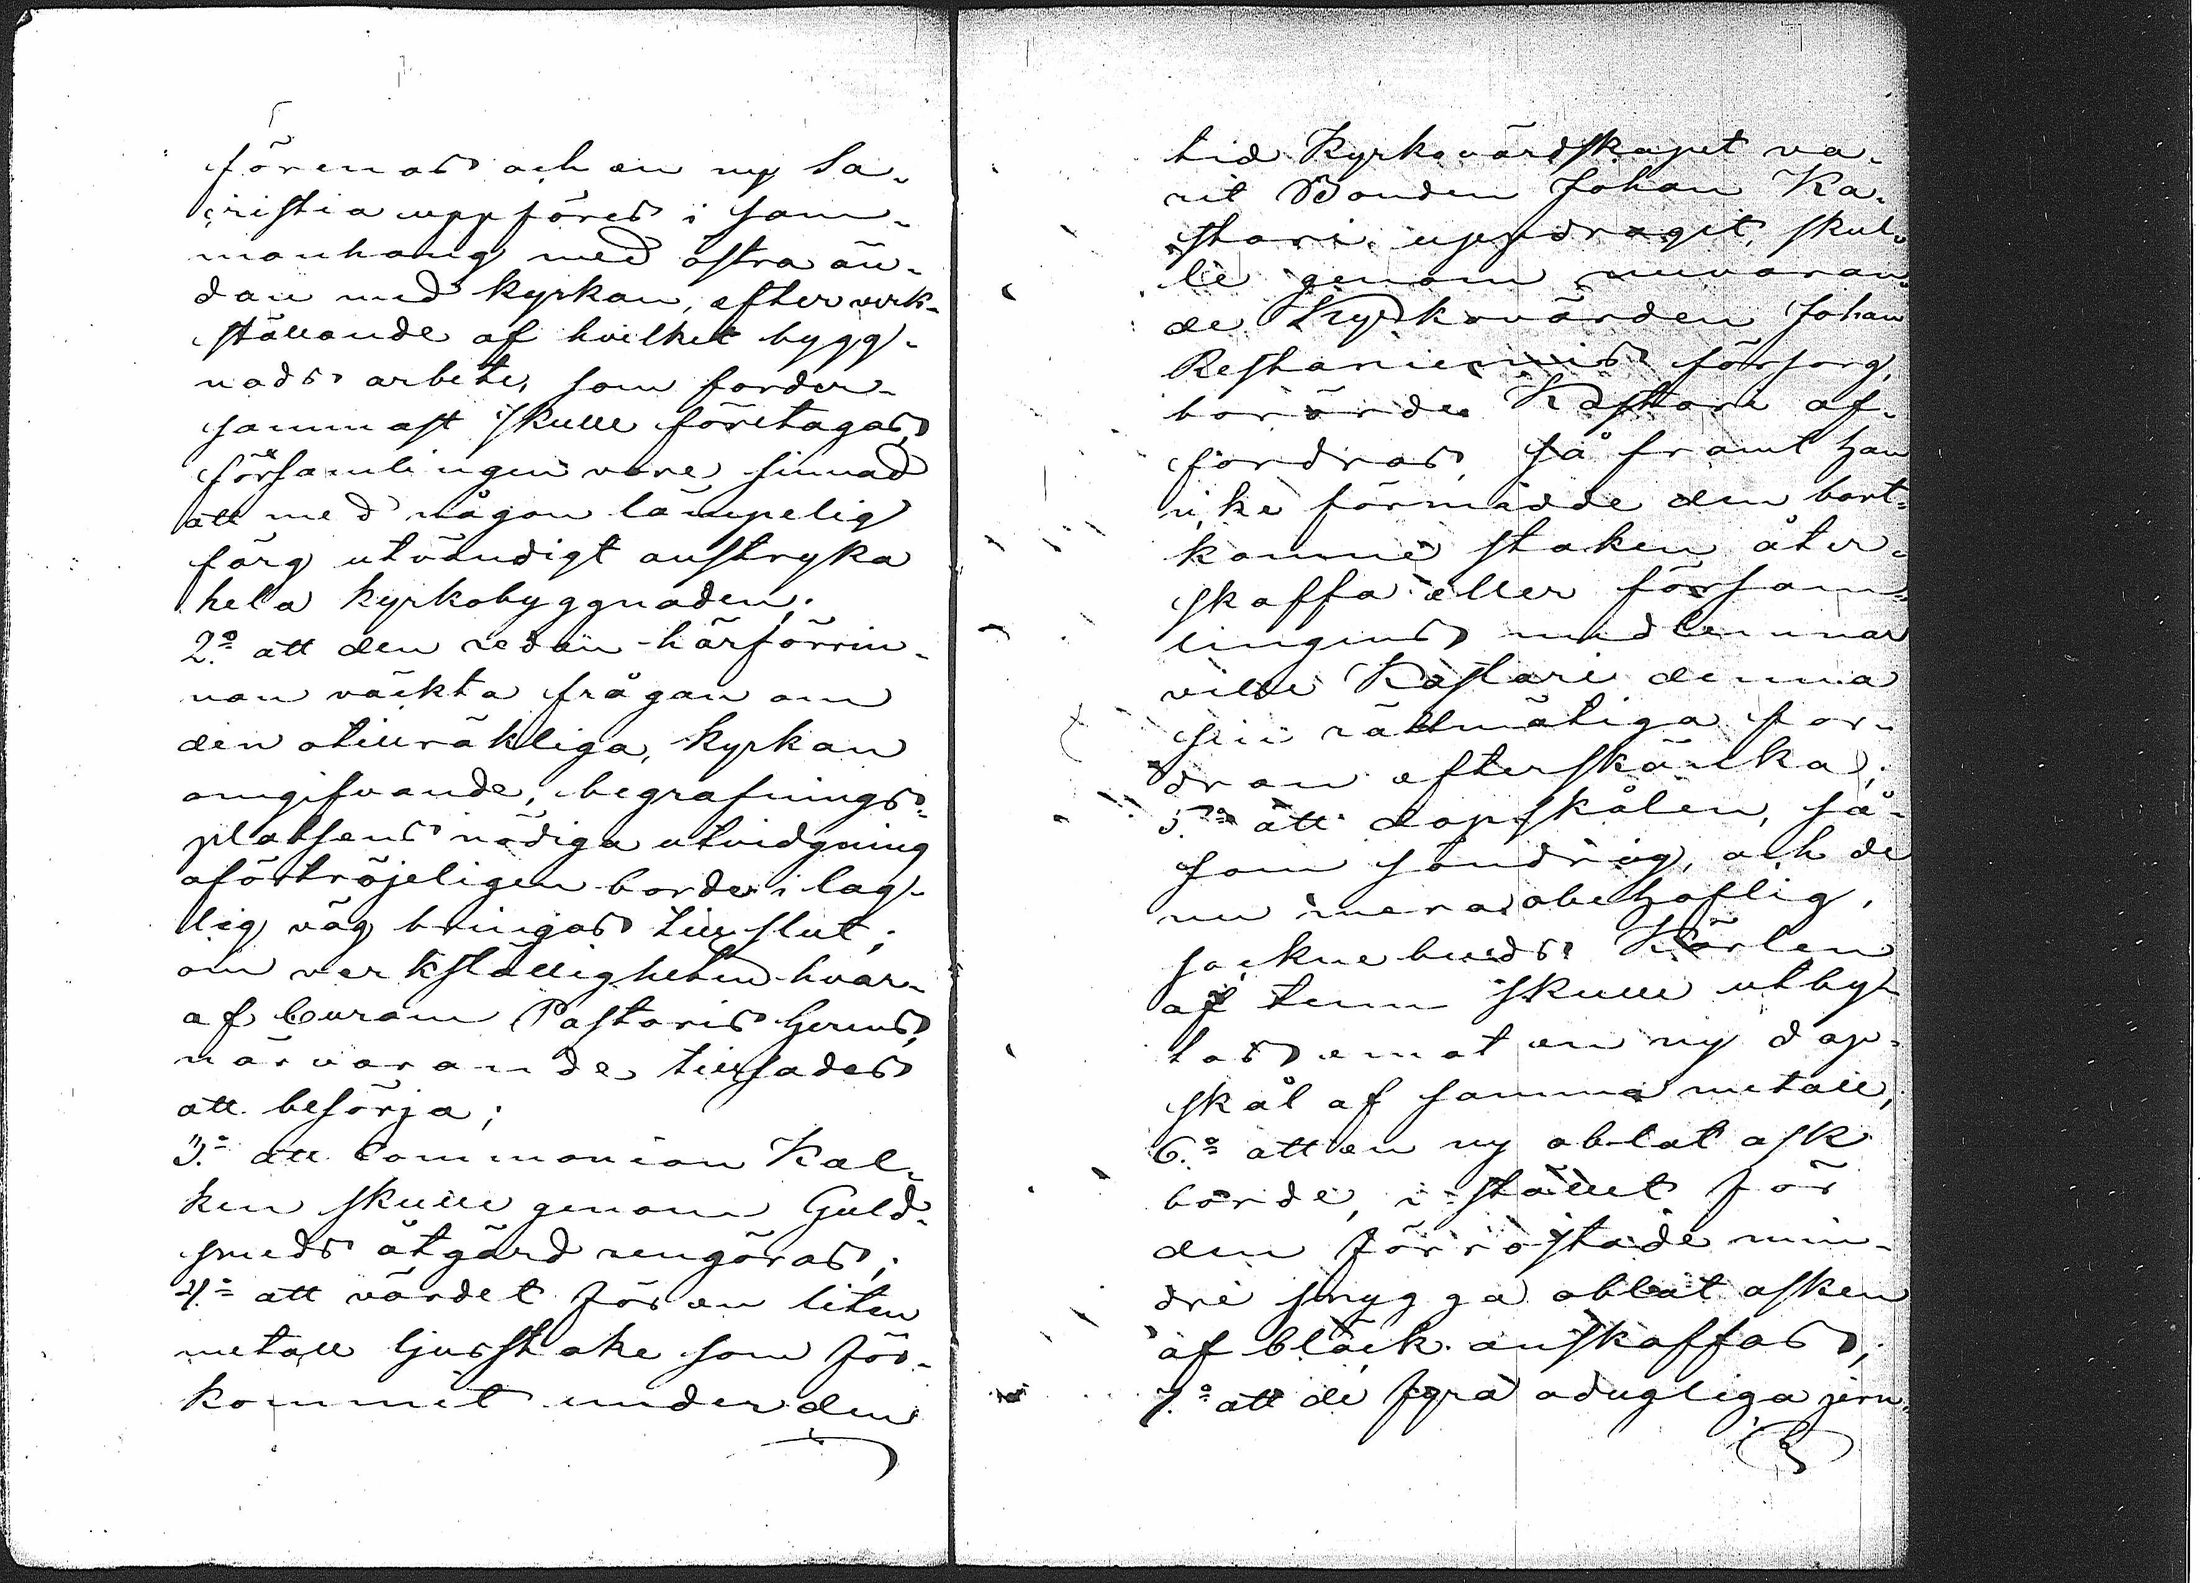 förenas och en ny Sa-
cristia uppföres i sam-
manhang med östra än-
dan med kyrkan, efter verk-
ställande af hvilket bygg-
nads arbete, som forder-
sammast skulle företagas,
församlingen vore sinnad
att med någon lämpelig
färg utvändigt anstryka
hela kyrkobyggnaden;
2:o att den redan härförrin-
nan väckta frågan om
den otillräkliga, kyrkan
omgifvande, begrafnings-
platsens nödiga utvidgning
oförtröjeligen borde i lag-
lig väg bringas till slut;
om verkställigheten hvar-
af Curam Pastoris Gerens,
närvarande tillsades
att besörja;
3:o att Communion Kal-
ken skulle genom Guld-
smeds åtgärd rengöras;
4:o att värdet för en liten
metall ljusstake som för-
kommit under den
tid Kyrkovärdskapet va-
rit Bonden Johan Ka-
stari uppdraget, skul-
le genom nuvaran-
de Kyrkovärden Johan
försorg,
berörde Kastari af-
fordras, så framt han
icke förmådde den bort-
komne staken åter-
skaffa eller försam-
lingens medlemmar
ville Kastari denna
sin rättmätiga for-
dran efterskänka;
5:o att dopskålen, så-
som söndrig, och de
nu mera obehöflig,
sockne buds Kärlen
af tenn skulle utby-
tas emot en ny dop-
skål af samma metall,
6:o att en ny oblat ask
borde, i stället för
den förrostade min-
dre snygga oblat asken
af bläck anskaffas;
7:o att de fyra odugliga jern-